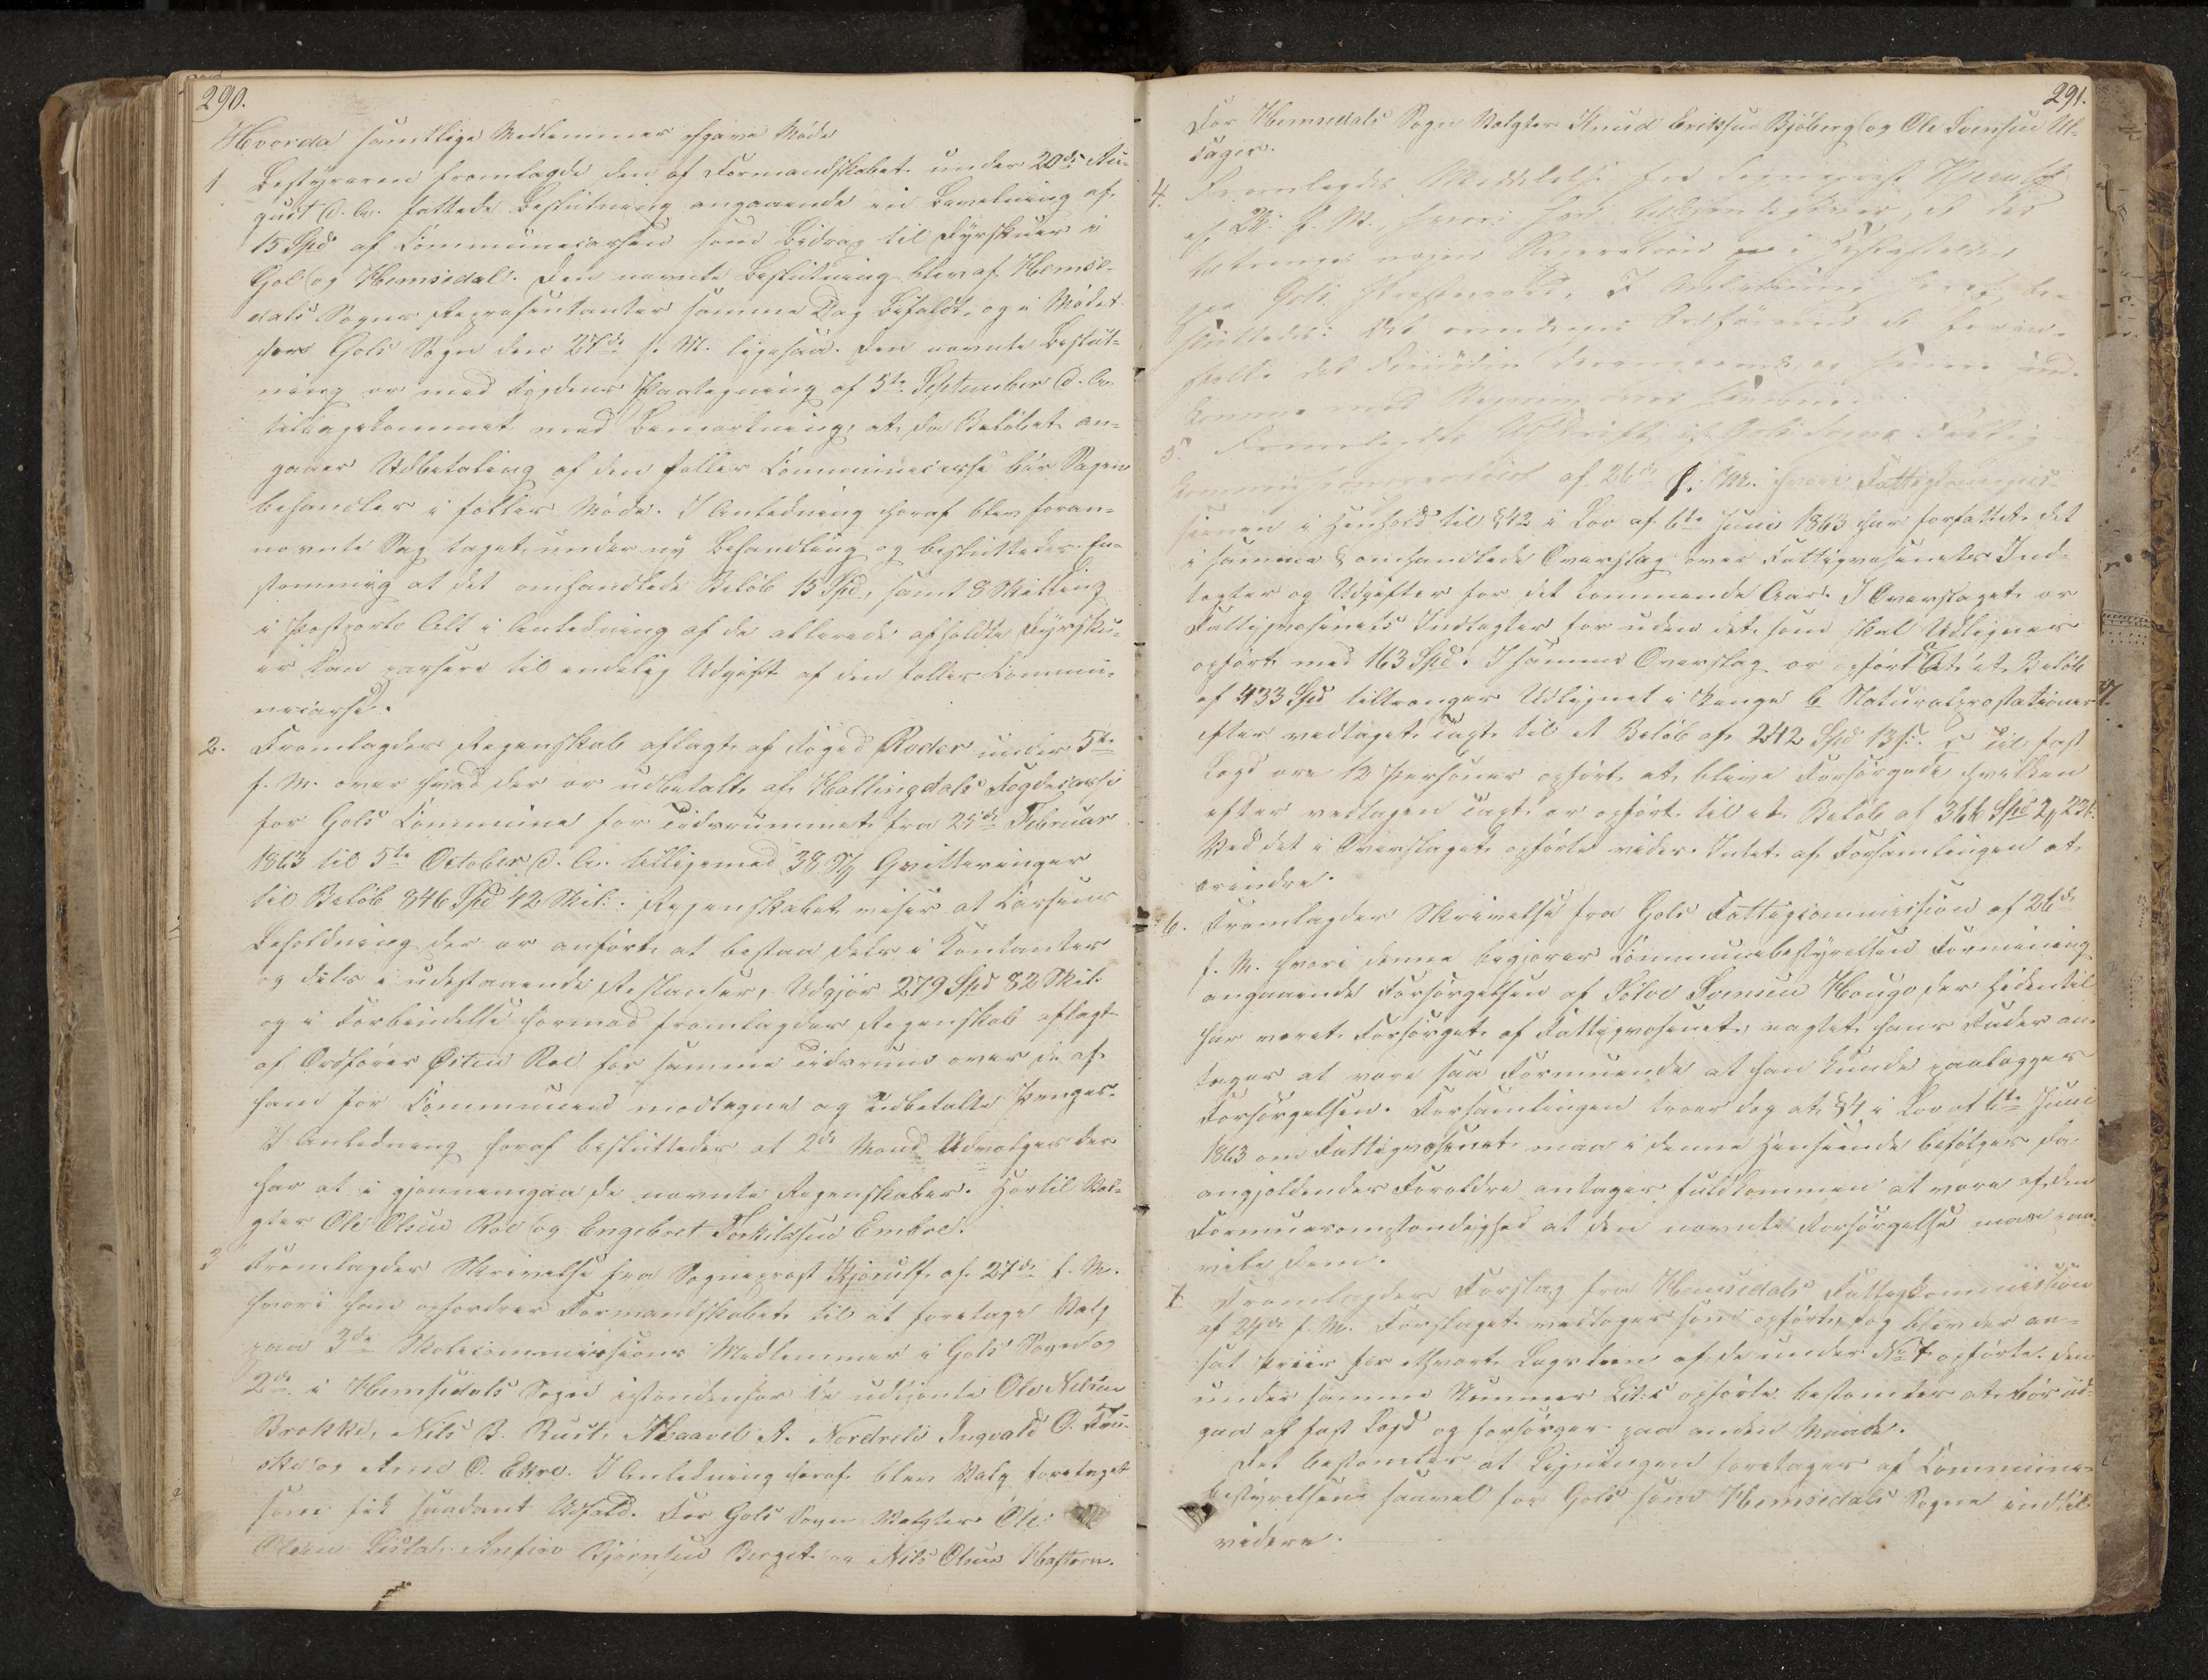 290.
Hvorda samtlige Medlemmer afgave Møde
1 Bestyreren fremlagde den af Formandskabet under 20de Au-
gust d. A. fattede Beslutning angaaende en Bevilning af
15 Spd af Communecassen som Bidrag til Dyrskuer i
Gol og Hemsedal. Den nævnte Beslutning blev af Hemse-
dals Sogns Repræsentanter samme Dag Bifaldt, og i Mødet
for Gols Sogn den 27de s. M. ligesaa. Den nævnte Beslut-
ning er med Fogdens Paategning af 5te September d. A.
tilbagekommet med Bemærkning, at da Beløbet an-
gaaer Udbetaling af den fælles Communecasse bør Sagen
behandles i fælles Møde. I Anledning heraf blev foran-
nævnte Sag taget under ny Behandling og besluttedes En-
stemmig at det omhandlede Beløb 15 Spd, samt 8 Skilling
i Postporto Alt i Anledning af de allerede afholdte Dyrsku-
er kan passere til endelig Udgift af den fælles Commu-
necasse.
2. Fremlagdes Regnskab aflagt af Foged Roder under 5te
f. M. over hvad der er udbetalt af Hallingdals Fogdecasse
for Gols Commune for Tidsrummet fra 25de Februar
1863 til 5te October d. A. tilligemed 38 Qvitteringer
til Beløb 846 Spd 42 Skil. Regnskabet viser at Cassens
Beholdning der er anført at bestaa dels i Contanter
og dels i udestaaende Restanser, Udgjør 279 Spd 82 Skil.
og i Forbindelse hermed fremlagdes Regnskab aflagt
af Ordfører Østen Roe for samme Tidsrum over de af
ham for Communen modtagne og Udbetalte Penger.
I Anledning heraf besluttedes at 2de Mænd Udvælges der
har at i gjennemgaa de nævnte Regnskaber. Hertil Val-
gtes Ole Olsen Roe og Engebret Torkildsen Embre.
3 Fremlagdes Skrivelse fra Sogneprest Kjerulf af 27de f. M.
hvori han opfordrer Formandskabet til at foretage Valg
paa 3de Skolecommissions Medlemmer i Gols Sogn og
2de i Hemsedals Sogn istedenfor de udtjente Ole Nilsen
Brokke, Nils B. Rust, Haavel A. Nordreli Ingvald O.
og Arne O. Ekre. I Anledning heraf blev Valg foretaget
som fik saadant Udfald. For Gols Sogn Valgtes Ole
Olsen Anfin Bjørnsen Berget og Nils Olsen
291.
For Hemsedals Sogn Valgtes Knud Eriksen Bjøberg og Ole Svensen Ul-
sager.
4. Fremlagdes Meddelelse fra Sogneprest Kjerulf
af 28 f. M. hvori han tilkjendegiver, at der
tiltrænges nogen Reparation i
paa Gols Præstegaard. I Anledning heraf be-
sluttedes: Det overdrages Ordføreren at foran-
stalte det Fornødne og senere ind-
komme med Regning over
5. Fremlagdes Udskrift af Gols Sogns Fattig
af 26de f. M. hvori Fattigkommis-
sionen i Henhold til § 42 i Lov af 6te Juni 1863 har forfattet det
i samme § omhandlede Overslag over Fattigvæsenets Ind-
tægter og Udgifter for det kommende Aar. I Overslaget er
Fattigvæsenets Indtægter for uden det som skal Udlignes
opført med 163 Spd. I samme Overslag er opført At et Beløb
af 433 Spd tiltrænges Udlignet i Penge b Naturalpræstationer
efter vedtaget Taxt til et Beløb af 242 Spd 13 s. c Til fast
Lægd ere 12 Personer opført at blive Forsørgede hvilken
efter vedtagen Taxt er opført til et Beløb af 366 Spd 2 23 s.
Ved det i Overslaget opførte vides Intet af Forsamlingen at
erindre.
6. Fremlagdes Skrivelse fra Gols Fattigcommission af 26de
f. M. hvori denne begjærer Communebestyrelsens Formening
angaaende Forsørgelsen af Sølve Svensen Hauge der hidentil
har været Forsørget af Fattigvæsenet, uagtet hans Fader an-
tages at være saa Formuende at han kunde paalægges
Forsørgelsen. Forsamlingen troer dog at § 4 i Lov af 6te Juni
1863 om Fattigvæsenet maa i denne Henseende befølges da
angjeldendes Foreldre antages fuldkommen at være af den
Formuesomstændighed at den nævnte Forsørgelse maa paa-
hvile dem.
7 Fremlagdes Forslag fra Hemsedals Fattigkommission
af 24de f. M. Forslaget vedtages som opført, dog blev der an-
sat Priis for Ethvert Lægslem af de under No 7 opførte. Den
under samme Nummer Lit: c opførte bestemtes at bør ud-
gaa af fast Lægd og forsørges paa anden Maade.
Det bestemtes at Ligningen foretages af Commune-
bestyrelsen saavel for Gols som Hemsedals Sogne indtil
videre.